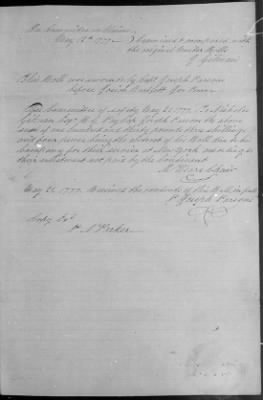 In Committee on Claims
May 12th 1777 — Examined & compared with
the original Muster Rolls
J Gilman
This Roll was sworn to by Capt Joseph Parsons
before Josiah Bartlett Jus Peace
In Committee of Safety May 21, 1777. To Nicholas
Gilman Esqr R. G. Pay Capt Joseph Parsons the above
sum of one hundred and thirty pounds three shillings
and four pence being the abstract of his Roll due to his
Company for their service at New York according to
their enlistment not paid by the Continent
M Weare Chair
May 21, 1777. Received the contents of this Roll in full
Pr Joseph Parsons
Copy Exd
Pr N Parker